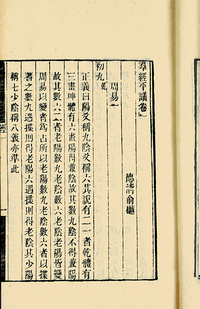 羣經平議卷一
德清俞樾
周易一
初九
正義曰陽爻稱九陰爻稱六其說有二一者乾體有
三畫坤體有六畫陽得兼陰故其數九陰不得兼陽
故其數六二者老陽數九老陰數六老陰老陽皆變
周易以變者爲占所以老陽數九老陰數六者以揲
蓍之數九遇揲則得老陽六遇揲則得老陰其少陽
稱七少陰稱八義亦準此